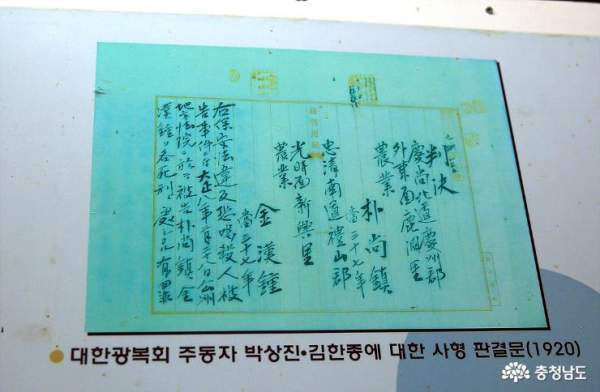 判決
慶尚北道慶州郡
外東面鹿洞里
農業
朴尚鎮
當三十七年
忠清南道禮山郡
光時面新興里
農業
金漢鍾
當三十七年
右保安法違反恐喝殺人被
告事件
大正八年
地方法院
被告朴尚鎮金
漢鍾
各死刑
대한광복회 주동자 박상진•김한종에 대한 사형 판결문(1920)
충청남도